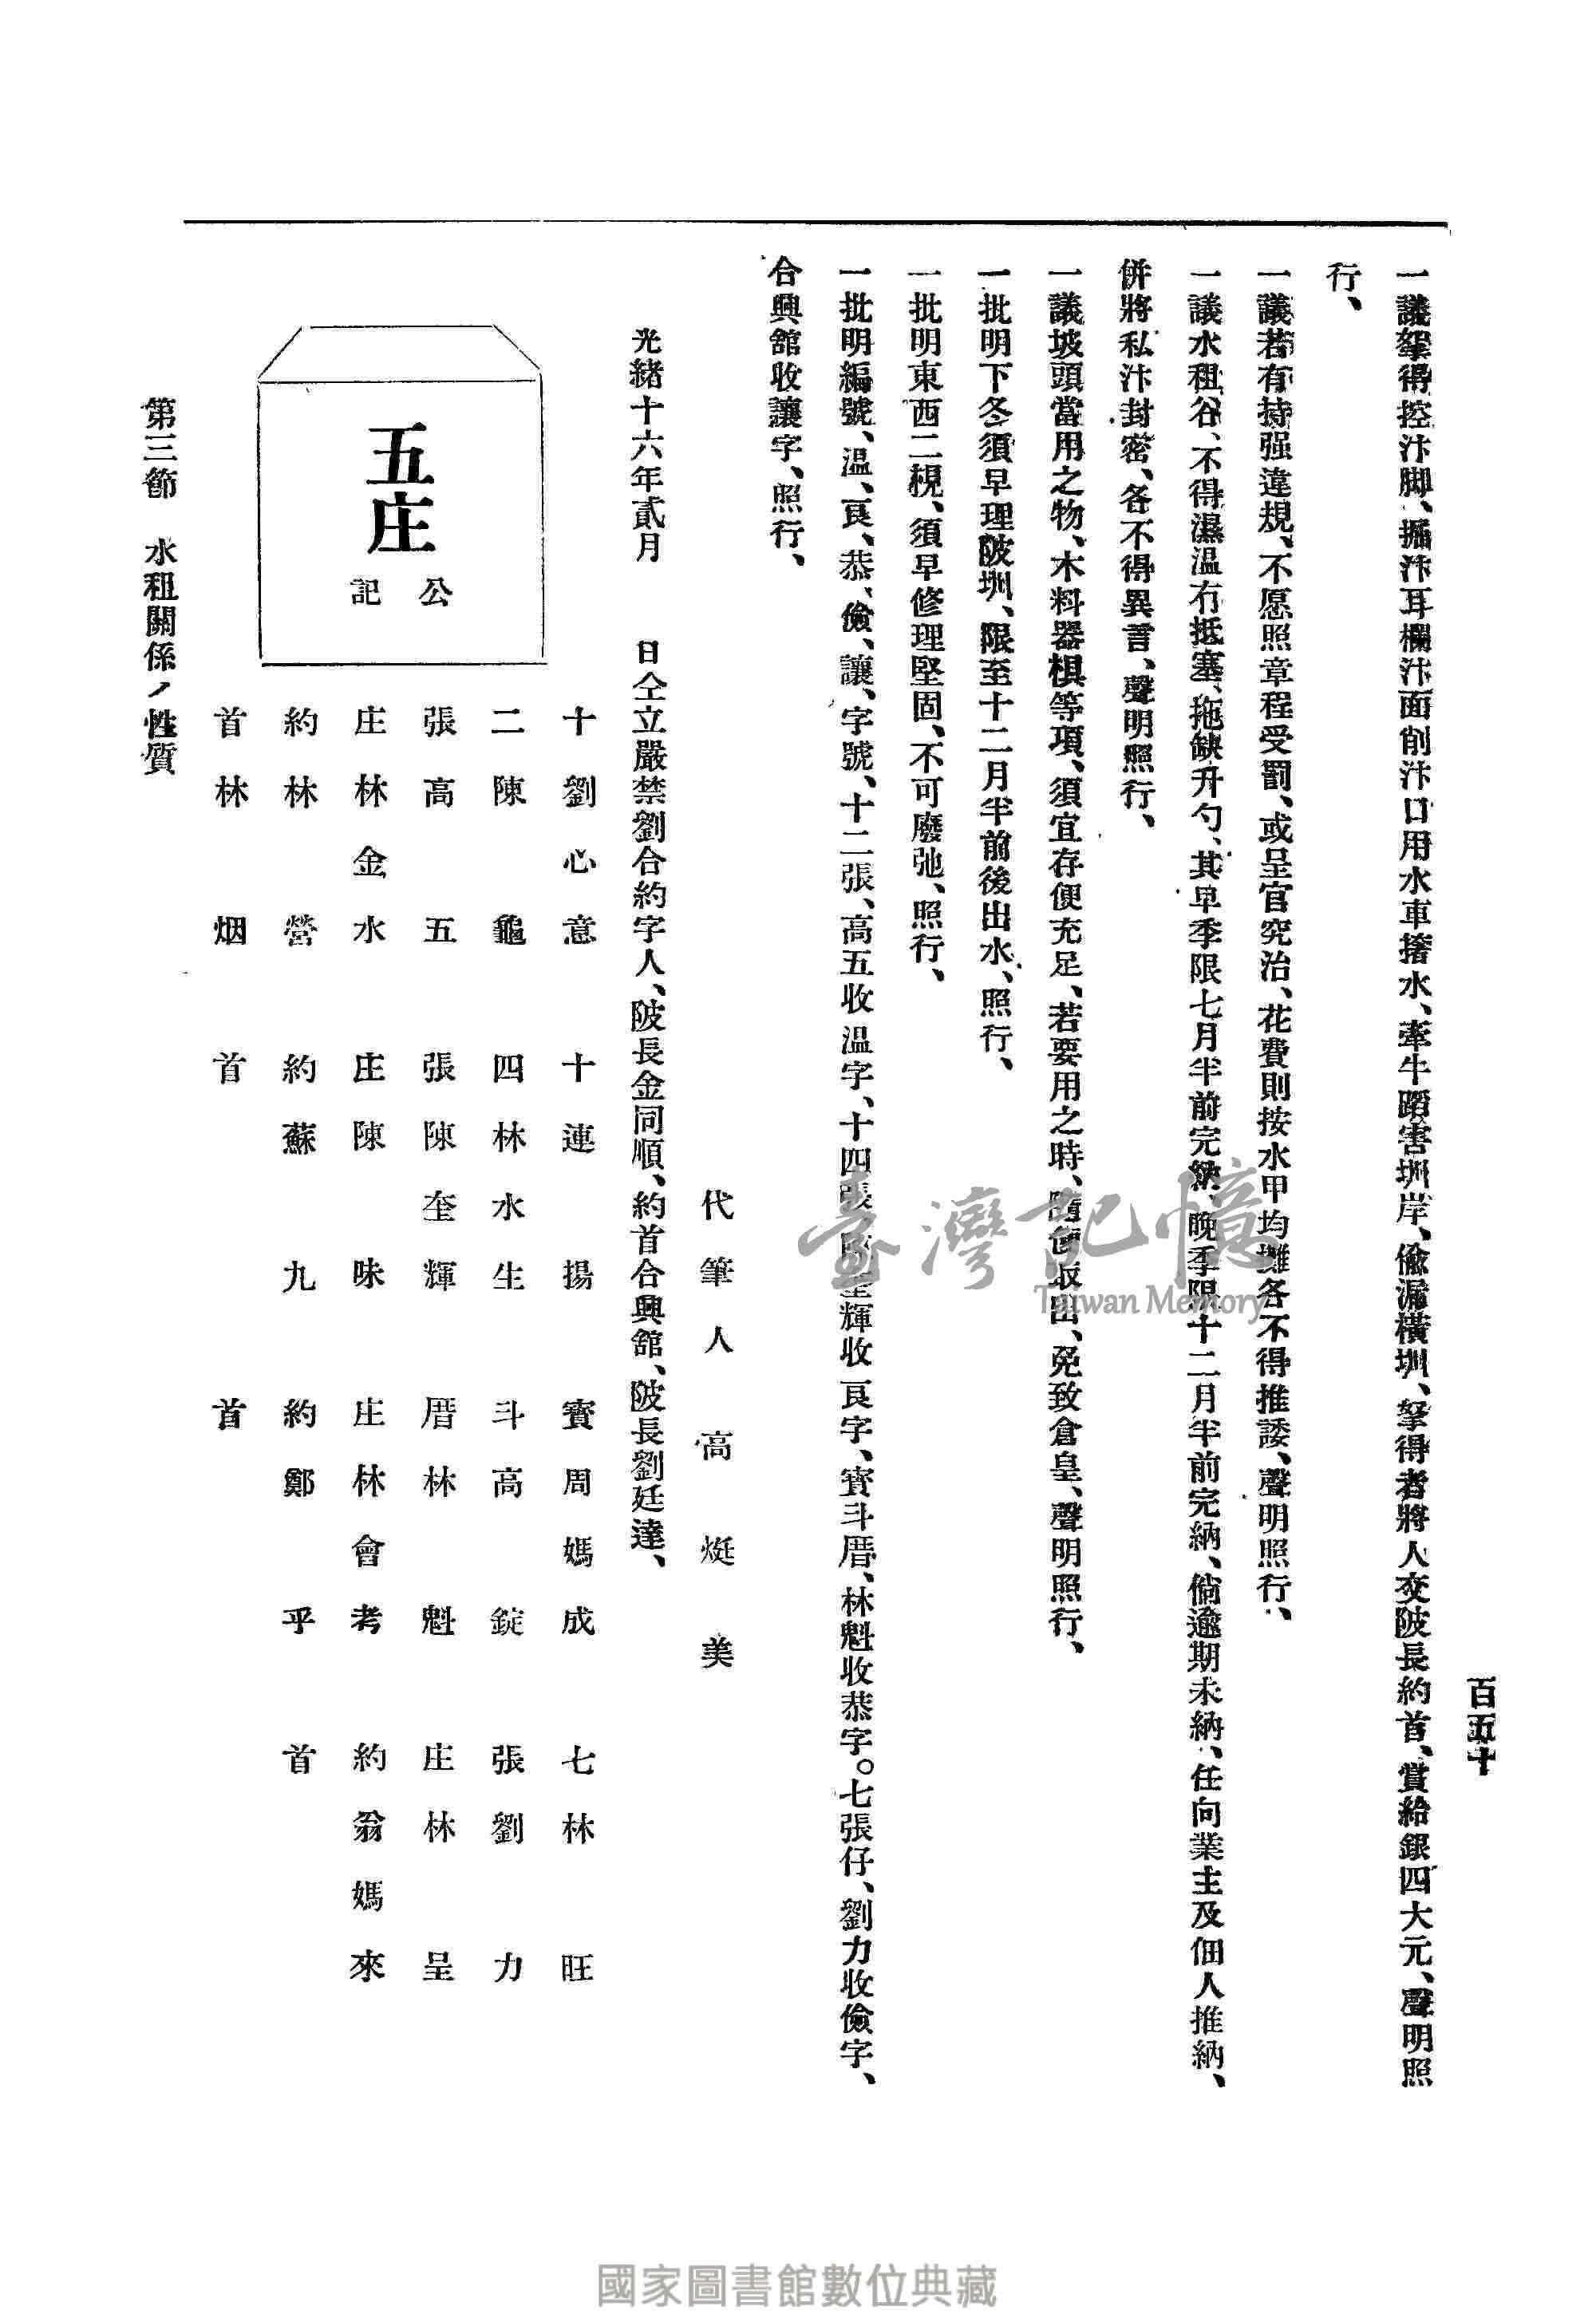 百五十
一議拏得控汴脚、掘汴耳欄汴面削汴口用水車撦水、牽牛蹈害圳岸、偸漏橫圳、拏得者將人交陂長約首、賞給銀四大元、聲明照
行、
一議若有持强違規、不愿照章程受罰、或呈官究治、花費則按水甲均攤各不得推諉、聲明照行、
一議水租谷、不得濕溫冇抵塞、拖缺升勺、其早季限七月半前完納、晚季限十二月半前完納、倘逾期未納、任向業主及佃人推納、
併將私汴封密、各不得異言、聲明照行、
一議坡頭當用之物、木料器棋等項、須宜存便充足、若要用之時、隨便取出、免致倉皇、聲明照行、
一批明下冬須早理陂圳、限至十二月半前後出水、照行、
一批明東西二梘、須早修理堅固、不可廢弛、照行、
一批明編號、温、良、恭、儉、讓、字號、十二張、高五收温字、十四張、陳奎輝收良字、寶斗厝、林魁收恭字。七張仔、劉力收儉字、
合興舘收讓字、照行、
代筆人 高烶美
光緒十六年貳月 日仝立嚴禁劉合約字人、陂長金同順、約首合興舘、陂長劉廷達、
十劉心意 十連揚 寶周媽成 七林旺
二陳龜 四林水生 斗高錠 張劉力
張高五 張陳奎輝 厝林魁 庄林呈
庄林金水 庄陳昧 庄林會考 約翁媽來
約林營 約蘇九 約鄭乎 首
首林烟 首 首
五庄
公記
第三節 水租關係ノ性質
臺灣記憶
Taiwan Memory
國家圖書館數位典藏